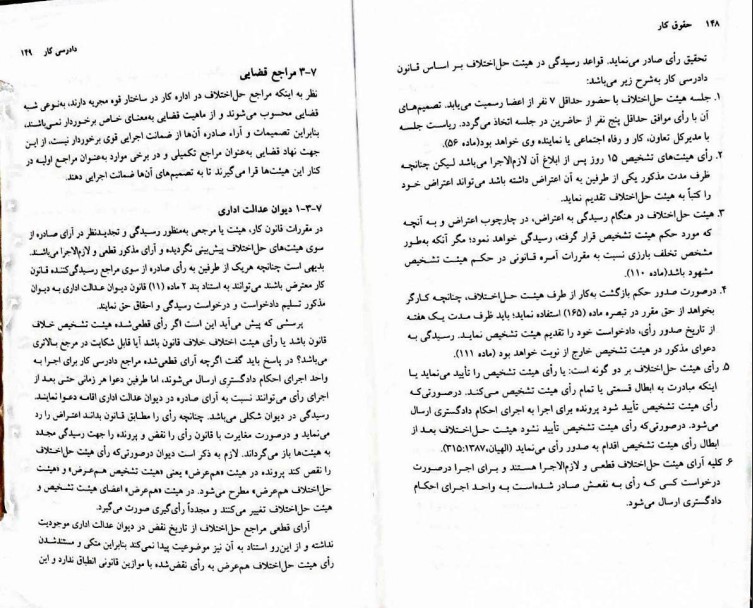 ۱۴۸ حقوق کار
تحقیق رأی صادر می‌نماید. قواعد رسیدگی در هیئت حل‌اختلاف بر اساس قانون
دادرسی کار به‌شرح زیر می‌باشد:
۱. جلسه هیئت حل‌اختلاف با حضور حداقل ۷ نفر از اعضا رسمیت می‌یابد. تصمیم‌های
آن با رأی موافق حداقل پنج نفر از حاضرین در جلسه اتخاذ می‌گردد. ریاست جلسه
با مدیرکل تعاون، کار و رفاه اجتماعی یا نماینده وی خواهد بود(ماده ۵۶).
۲. رأی هیئت‌های تشخیص ۱۵ روز پس از ابلاغ آن لازم‌الاجرا می‌باشد لیکن چنانچه
ظرف مدت مذکور یکی از طرفین به آن اعتراض داشته باشد می‌تواند اعتراض خود
را کتباً به هیئت حل‌اختلاف تقدیم نماید.
۳. هیئت حل‌اختلاف در هنگام رسیدگی به اعتراض، در چارچوب اعتراض و به آنچه
که مورد حکم هیئت تشخیص قرار گرفته، رسیدگی خواهد نمود؛ مگر آنکه به‌طور
مشخص تخلف بارزی نسبت به مقررات آمره قانونی در حکم هیئت تشخیص
مشهود باشد(ماده ۱۱۰).
۴. درصورت صدور حکم بازگشت به‌کار از طرف هیئت حل‌اختلاف، چنانچه کارگر
بخواهد از حق مقرر در تبصره ماده (۱۶۵) استفاده نماید؛ باید ظرف مدت یک هفته
از تاریخ صدور رأی، دادخواست خود را تقدیم هیئت تشخیص نماید. رسیدگی به
دعوای مذکور در هیئت تشخیص خارج از نوبت خواهد بود (ماده ۱۱۱).
۵. رأی هیئت حل‌اختلاف بر دو گونه است: یا رأی هیئت تشخیص را تأیید می‌نماید یا
اینکه مبادرت به ابطال قسمتی یا تمام رأی هیئت تشخیص می‌کند. درصورتی‌که
رأی هیئت تشخیص تأیید شود پرونده برای اجرا به اجرای احکام دادگستری ارسال
می‌شود. درصورتی‌که رأی هیئت تشخیص تأیید نشود هیئت حل‌اختلاف بعد از
ابطال رأی هیئت تشخیص اقدام به صدور رأی می‌نماید (الهیان،۳۱۵:۱۳۸۷).
۶. کلیه آرای هیئت حل‌اختلاف قطعی و لازم‌الاجرا هستند و برای اجرا درصورت
درخواست کسی که رأی به نفعش صادر شده‌است به واحد اجرای احکام
دادگستری ارسال می‌شود.
دادرسی کار ۱۴۹
۷-۳ مراجع قضایی
نظر به اینکه مراجع حل‌اختلاف در اداره کار در ساختار قوه مجریه دارند، به‌نوعی شبه
قضایی محسوب می‌شوند و از ماهیت قضایی به‌معنای خاص برخوردار نمی‌باشند،
بنابراین تصمیمات و آراء صادره آن‌ها از ضمانت اجرایی قوی برخوردار نیست، از این
جهت نهاد قضایی به‌عنوان مراجع تکمیلی و در برخی موارد به‌عنوان مراجع اولیه در
کنار این هیئت‌ها قرا می‌گیرند تا به تصمیم‌های آن‌ها ضمانت اجرایی دهند.
۷-۳-۱ دیوان عدالت اداری
در مقررات قانون کار، هیئت یا مرجعی به‌منظور رسیدگی و تجدیدنظر در آرای صادره از
سوی هیئت‌های حل‌اختلاف پیش‌بینی نگردیده و آرای مذکور قطعی و لازم‌الاجرا می‌باشند.
بدیهی است چنانچه هریک از طرفین به رأی صادره از سوی مراجع رسیدگی‌کننده قانون
کار معترض باشند، می‌توانند به استناد بند ۲ ماده (۱۱) قانون دیوان عدالت اداری به دیوان
مذکور تسلیم دادخواست و درخواست رسیدگی و احقاق حق نمایند.
پرسشی که پیش می‌آید این است اگر رأی قطعی‌شده هیئت تشخیص خلاف
قانون باشد یا رأی هیئت اختلاف خلاف قانون باشد آیا قابل شکایت در مرجع بالاتری
می‌باشد؟ در پاسخ باید گفت اگرچه آرای قطعی‌شده مراجع دادرسی کار برای اجرا به
واحد اجرای احکام دادگستری ارسال می‌شوند، اما طرفین دعوا هر زمانی حتی بعد از
اجرای رأی می‌توانند نسبت به آرای صادره در دیوان عدالت اداری اقامه دعوا نمایند.
رسیدگی در دیوان شکلی می‌باشد. چنانچه رأی را مطابق قانون بداند اعتراض را رد
می‌نماید و درصورت مغایرت با قانون رأی را نقض و پرونده را جهت رسیدگی مجدد
به هیئت‌ها باز می‌گرداند. لازم به ذکر است دیوان درصورتی‌که رأی هیئت حل‌اختلاف
را نقض کند پرونده در هیئت «هم‌عرض» یعنی «هیئت تشخیص هم‌عرض» و «هیئت
حل‌اختلاف هم‌عرض» مطرح می‌شود. در هیئت «هم‌عرض» اعضای هیئت تشخیص و
هیئت حل‌اختلاف تغییر می‌کنند و مجدداً رأی‌گیری صورت می‌گیرد.
آرای قطعی مراجع حل‌اختلاف از تاریخ نقض در دیوان عدالت اداری موجودیت
نداشته و از این‌رو استناد به آن نیز موضوعیت پیدا نمی‌کند بنابراین متکی و مستندشدن
رأی هیئت حل‌اختلاف هم‌عرض به رأی نقض‌شده با موازین قانونی انطباق ندارد و این